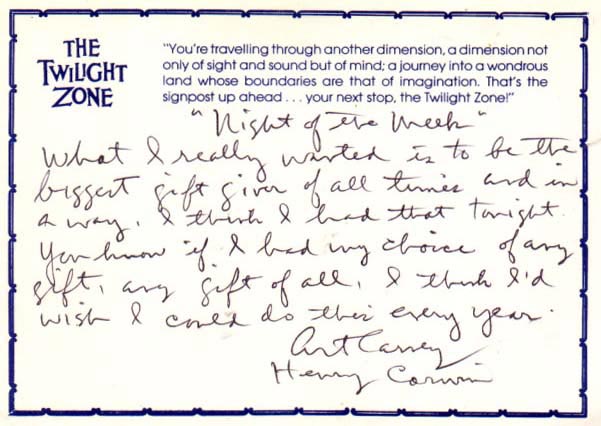 THE
TWILIGHT
ZONE
"You're travelling through another dimension, a dimension not
only of sight and sound but of mind; a journey into a wondrous
land whose boundaries are that of imagination. That's the
signpost up ahead . . . your next stop, the Twilight Zone!"
"Night of the Meek"
What I really wanted is to be the
biggest gift giver of all times and in
a way, I think I had that tonight.
You know if I had my choice of any
gift, any gift of all, I think I'd
wish I could do this every year.
Art Carney
Henry Corwin